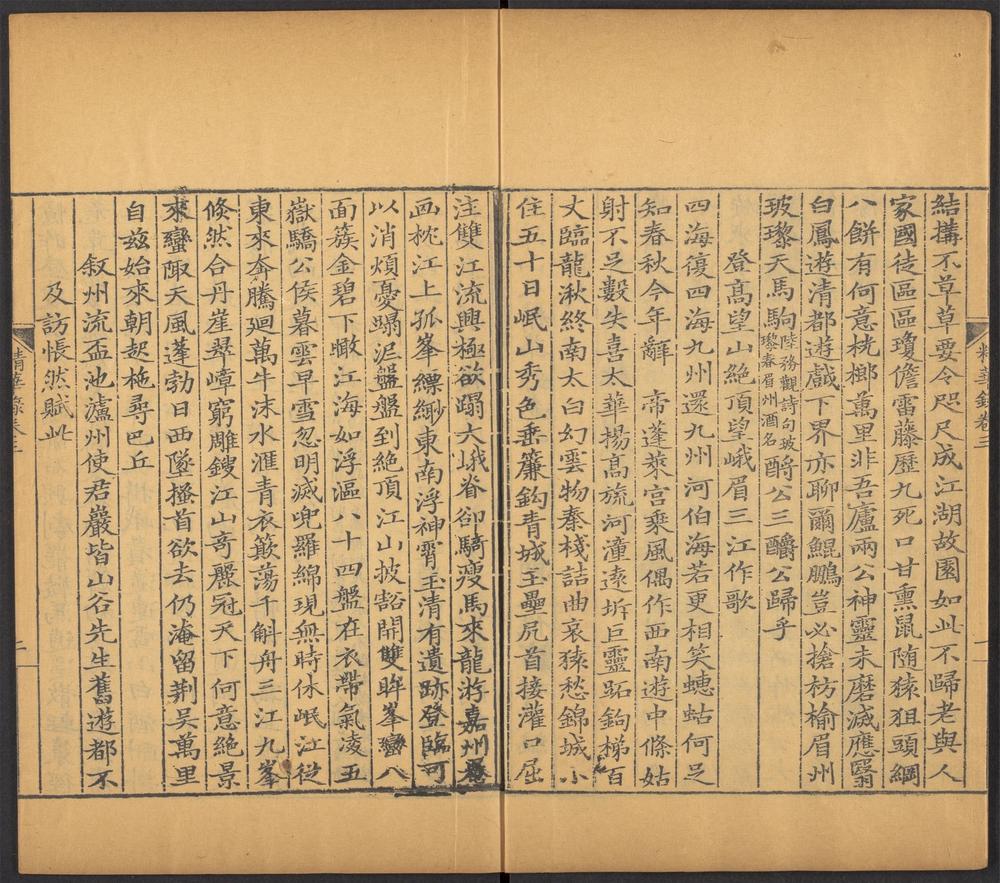 精華錄卷三
結搆不草草要令咫尺成江湖故園如此不歸老與人
家國徒區區瓊儋雷藤歷九死口甘熏鼠随猿狙頭綱
八餅有何意桄榔萬里非吾廬兩公神靈未磨滅應翳
白鳳遊清都遊戲下界亦聊爾鯤鵬豈必搶枋榆眉州
玻瓈天馬駒陸務觀詩句玻瓈春眉州酒名酹公三釂公歸乎
登高望山絶頂望峨眉三江作歌
四海復四海九州還九州河伯海若更相笑蟪蛄何足
知春秋今年辭 帝蓬萊宮乘風偶作西南遊中條姑
射不足數失喜太華揚高旒河潼逺坼巨靈跖鉤梯百
丈臨龍湫終南太白幻雲物秦棧詰曲哀猿愁錦城小
住五十日岷山秀色乗簾鉤青城玉壘尻首接灌口屈
注雙江流興極欲躡大峨脊卻騎瘦馬來龍游嘉州
画枕江上孤峯縹緲東南浮神霄玉清有遺跡登臨可
以消煩憂躡泥盤盤到絶頂江山披豁開雙眸峯巒八
面簇金碧下瞰江海如浮漚八十四盤在衣帶氣凌五
嶽驕公侯暮雲早雪忽明滅兜羅綿現無時休岷江従
東來奔騰廻萬牛沬水滙青衣簸蕩千斛舟三江九峯
倐然合丹崖翠嶂窮雕鎪江山奇麗冠天下何意絶景
來蠻陬天風蓬勃日西墜搔首欲去仍淹留荆吴萬里
自兹始來朝起柂尋巴丘
叙州流盃池瀘州使君巖皆山谷先生舊遊都不
及訪悵然賦此
精華錄卷三
二